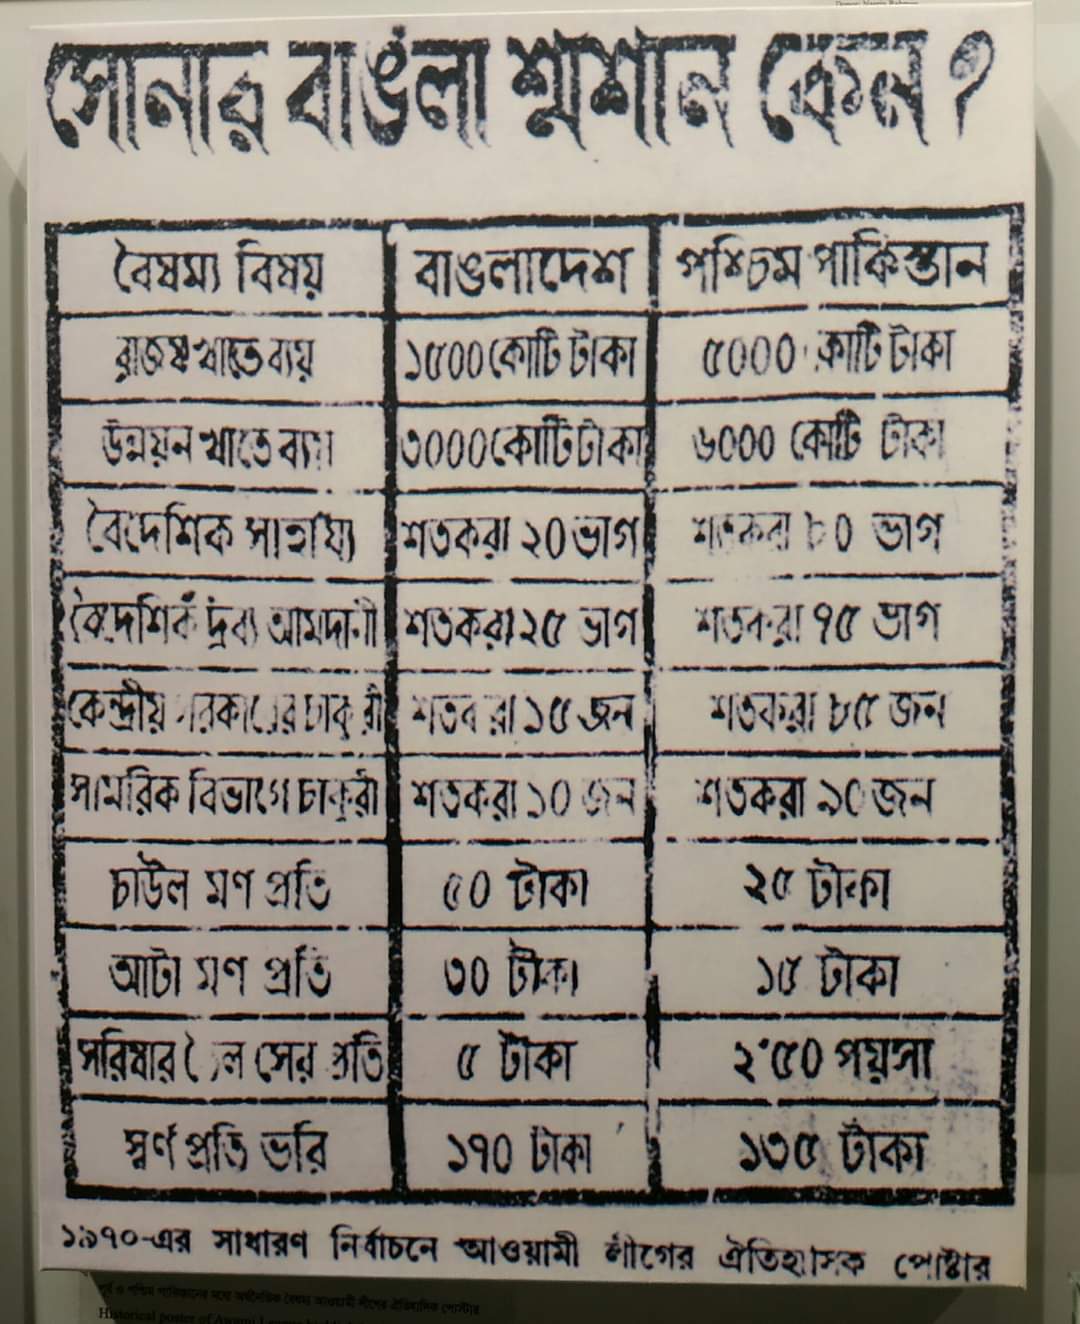 সোনার বাঙলা শ্মশান কেন ?
বৈষম্য বিষয় বাঙলাদেশ পশ্চিম পাকিস্তান
রাজস্ব খাতে ব্যয় ১৫০০ কোটি টাকা ৫০০০ কোটি টাকা
উন্নয়ন খাতে ব্যয় ৩০০০ কোটি টাকা ৬০০০ কোটি টাকা
বৈদেশিক সাহায্য শতকরা ২০ ভাগ শতকরা ৮০ ভাগ
বৈদেশিক দ্রব্য আমদানী শতকরা ২৫ ভাগ শতকরা ৭৫ ভাগ
কেন্দ্রীয় সরকারের চাকুরী শতকরা ১৫ জন শতকরা ৮৫ জন
সামরিক বিভাগে চাকুরী শতকরা ১০ জন শতকরা ৯০ জন
চাউল মণ প্রতি ৫০ টাকা ২৫ টাকা
আটা মণ প্রতি ৩০ টাকা ১৫ টাকা
সরিষার তৈল সের প্রতি ৫ টাকা ২'৫০ পয়সা
স্বর্ণ প্রতি ভরি ১৭০ টাকা ১৩৫ টাকা
১৯৭০-এর সাধারণ নির্বাচনে আওয়ামী লীগের ঐতিহাসিক পোষ্টার
পূর্ব ও পশ্চিম পাকিস্তানের মধ্যে অর্থনৈতিক বৈষম্য আওয়ামী লীগের ঐতিহাসিক পোস্টার
Historical poster of Awami League